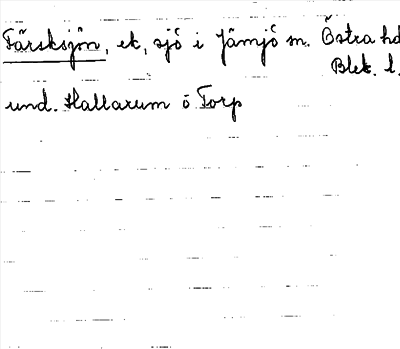 Färsksjön, ek, sjö i Jämjö sn. Östra hd
Blek. l.
und. Hallarum o Torp